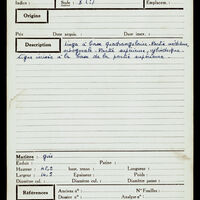 Indice : Style : 8 (?) Emplacem. :
Origine
Pér. Date acquis. : Date insc. :
Description linga à base quadrangulaire. Partie médiane,
octogonale. Partie supérieure, cylindrique.
ligne incisée à la base de la partie supérieure.
Matière : grès
Enduit : Patine :
Hauteur : base, tenon : Longueur :
Largeur : Epaisseur : Profondeur :
Diamètre col. : Diamètre panse :
Références Anciens n° : N° Fouilles :
Dossier n° : Analyse n° :